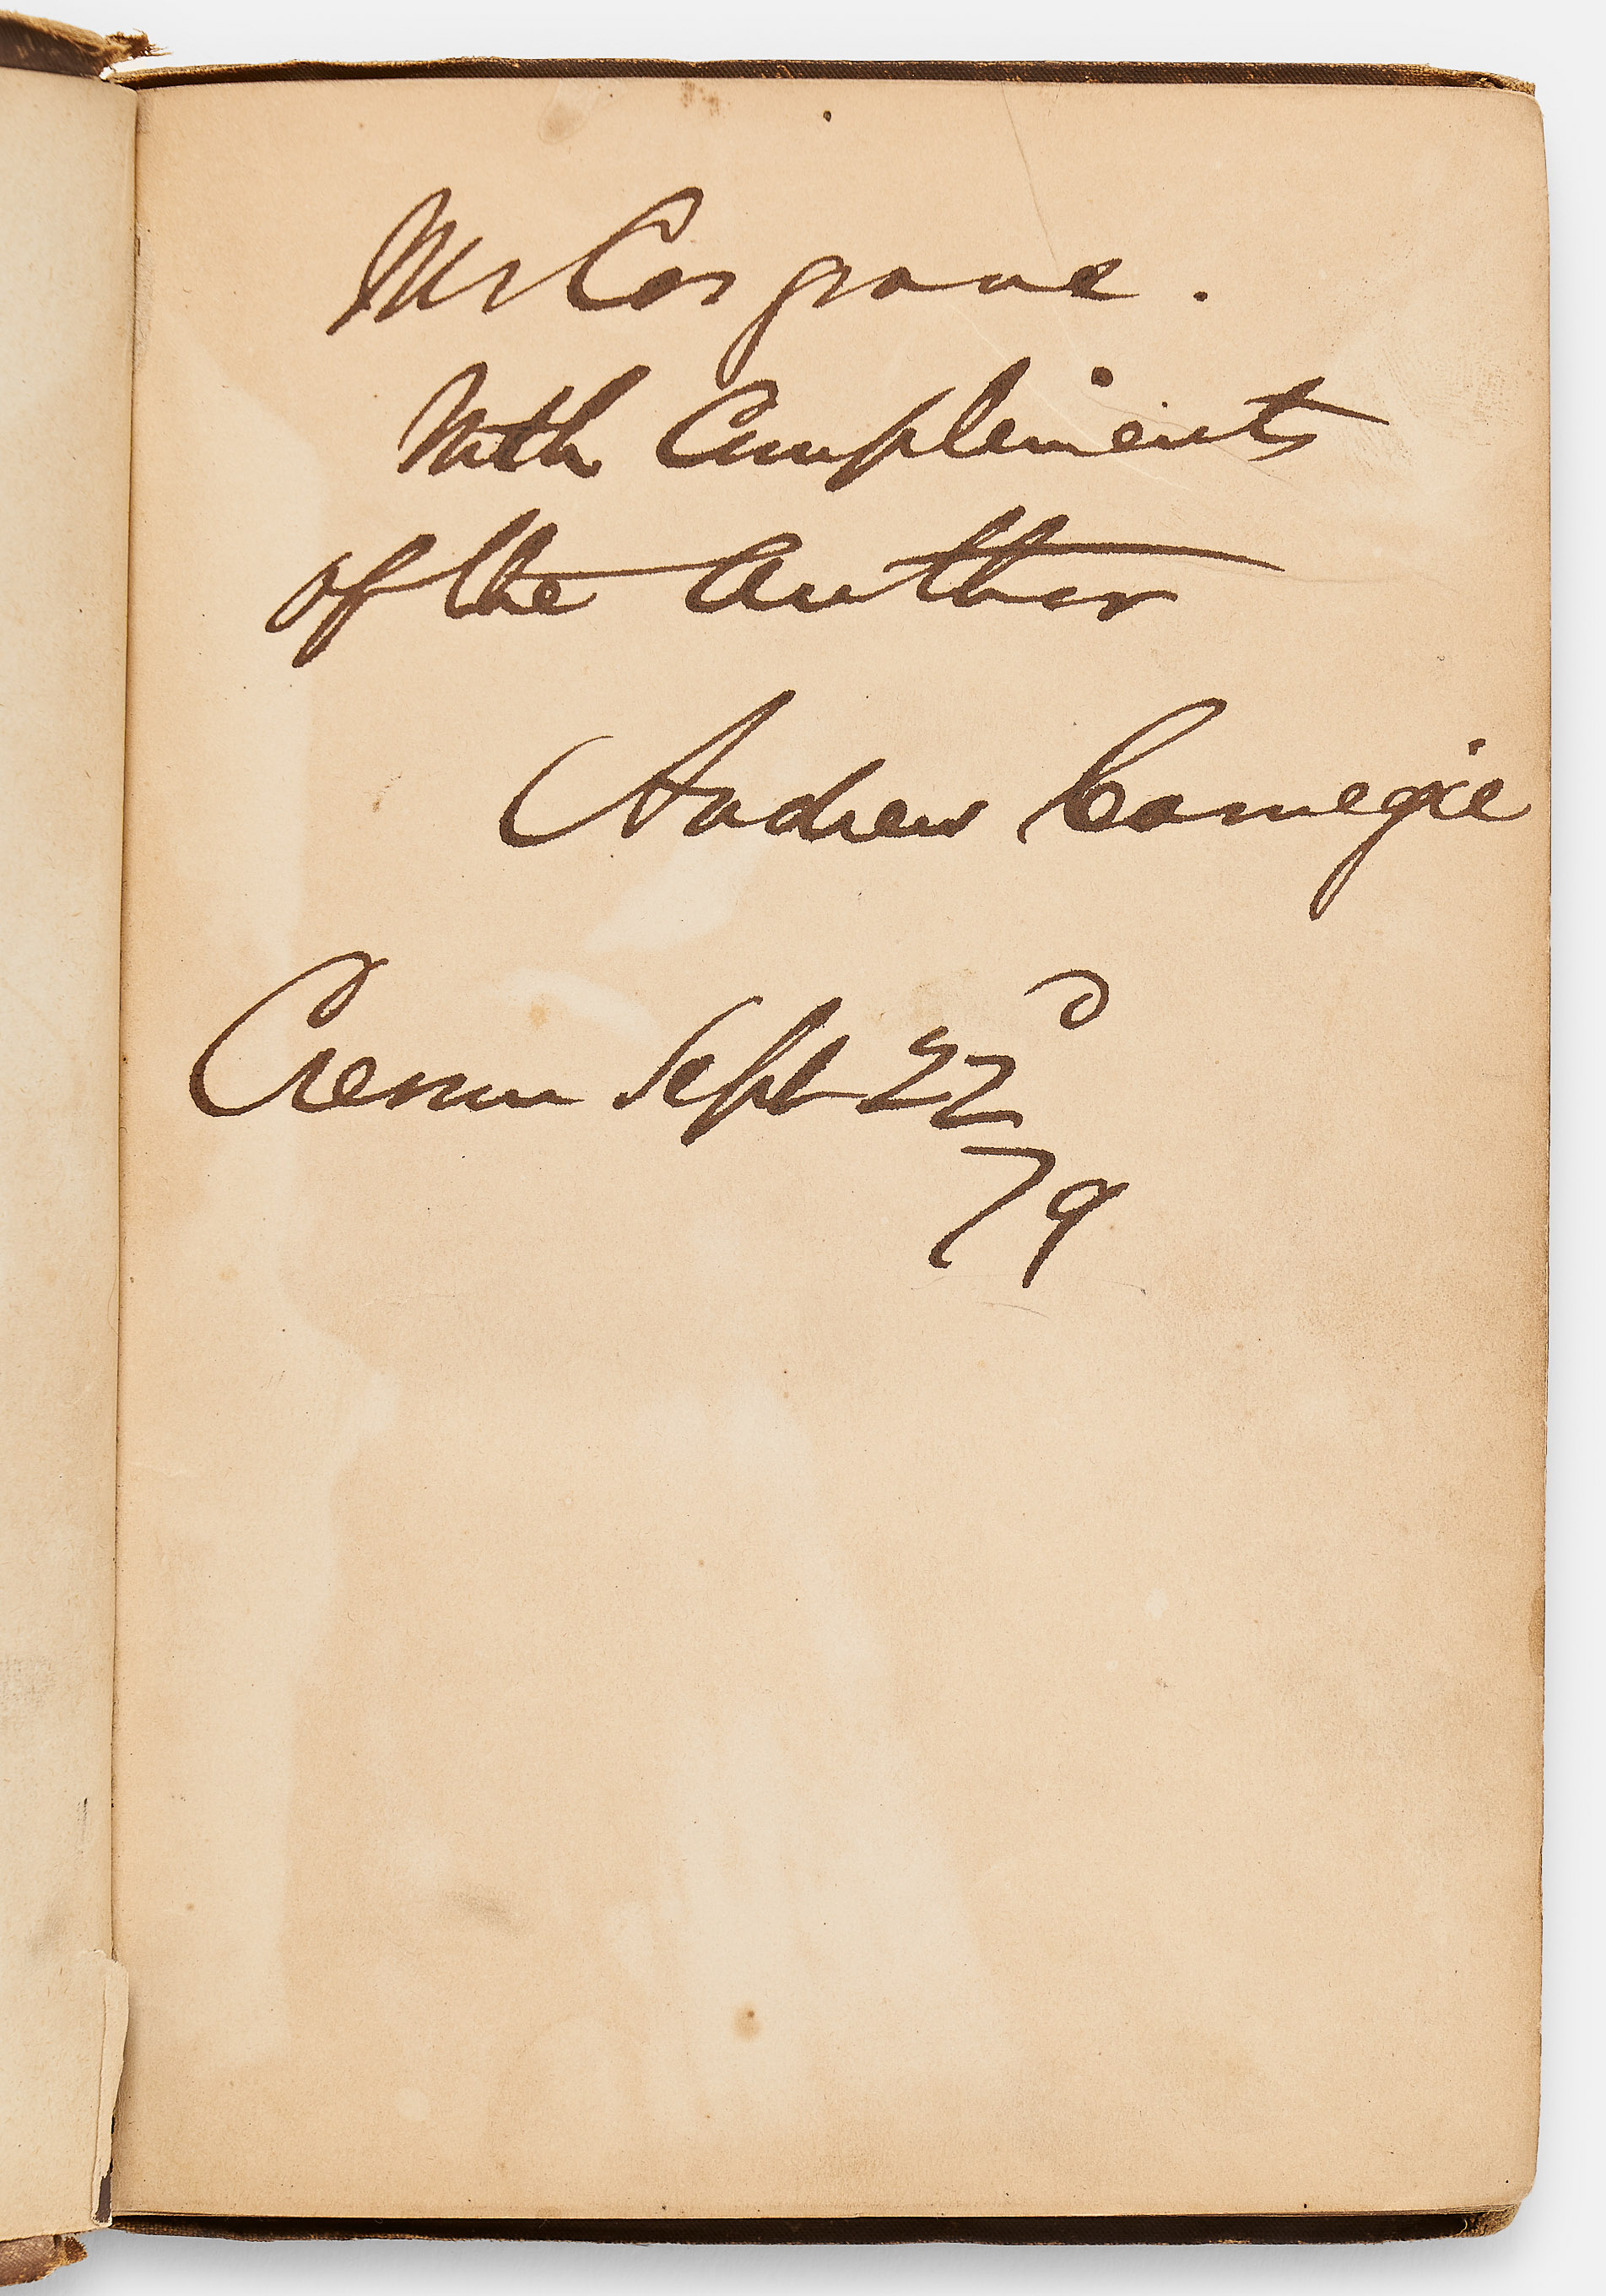 Mr Cosgrave.
With Compliments
of the Author
Andrew Carnegie
Cresson Sept 22d
79